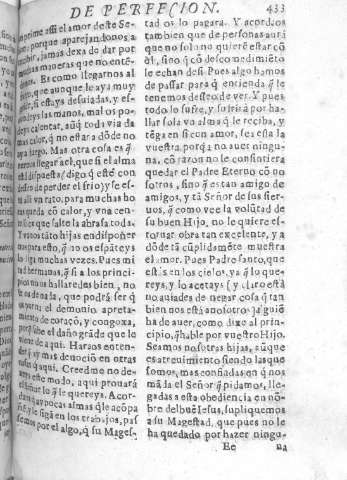 DE PERFECION. 433
prime assi el amor deste Se-
porque aparejandonos a
bir, jamas dexa de dar por
muchas maneras que no ente-
Es como llegarnos al
que aunque le aya muy
si estays desuiadas, y es-
las manos, mal os po-
deys calentar, aũq toda via da
mas calor, q̃ no estar a dõde no
aya fuego. Mas otra cosa es q̃
llegar a el, que si el alma
està dispuesta (digo q̃ estè con
desseo de perder el frio) y se es-
tà alli vn rato, para muchas ho
ras queda cõ calor, y vna cen-
q̃ salte la abrasa toda.
Y vaos tãto hijas en disponer
nos para esto, q̃ no os espãteys
lo diga muchas vezes. Pues mi
rad hermanas, q̃ si a los princi-
pios no os hallaredes bien, no
se os de nada, que podrà ser q̃
el demonio apreta-
miento de coraçõ, y congoxa,
porq̃ sabe el daño grãde que le
viene de aqui. Hara os enten-
der q̃ ay mas deuociõ en otras
cosas q̃ aqui. Creedme no de-
xeys este modo, aqui prouarà
el Señor lo q̃ le quereys. Acor-
daos q̃ ay pocas almas q̃ le acõpa
ñẽ, y le sigã en los trabajos, pas
semos por el algo, q̃ su Mages-
tad os lo pagara. Y acordaos
tambien que de personas aurà
que no solo no quierẽ estar cõ
èl, sino q̃ cõ descomedimiẽto
le echan de si. Pues algo hamos
de passar para q̃ entienda q̃ le
tenemos desseo de ver. Y pues
todo lo sufre, y sufrirà por ha-
llar sola vna alma q̃ le reciba, y
tẽga en si con amor, sea esta la
vuestra, porq̃ a no auer ningu-
na, cõ razon no le consintiera
quedar el Padre Eterno cõ no
sotros, sino q̃ es tan amigo de
amigos, y tã Señor de sus sier-
uos, q̃ como vee la volũtad de
su buen Hijo, no le quiere es-
toruar obra tan excelente, y a
dõde tã cũplidamẽte muestra
el amor. Pues Padre santo, que
estàs en los cielos, ya q̃ lo que-
reys, y lo acetays (y claro està
no auiades de negar cosa q̃ tan
bien nos està a nosotros) alguiẽ
ha de auer, como dixe al prin-
cipio, q̃ hable por vuestro Hijo.
Seamos nosotras hijas, aũque
es atreuimiento siendo las que
somos, mas confiadas en q̃ nos
mãda el Señor q̃ pidamos, lle-
gadas a esta obediencia en nõ-
bre del buẽ Iesus, supliquemos
a su Magestad, que pues no le
ha quedado por hazer ningu-
Ee na